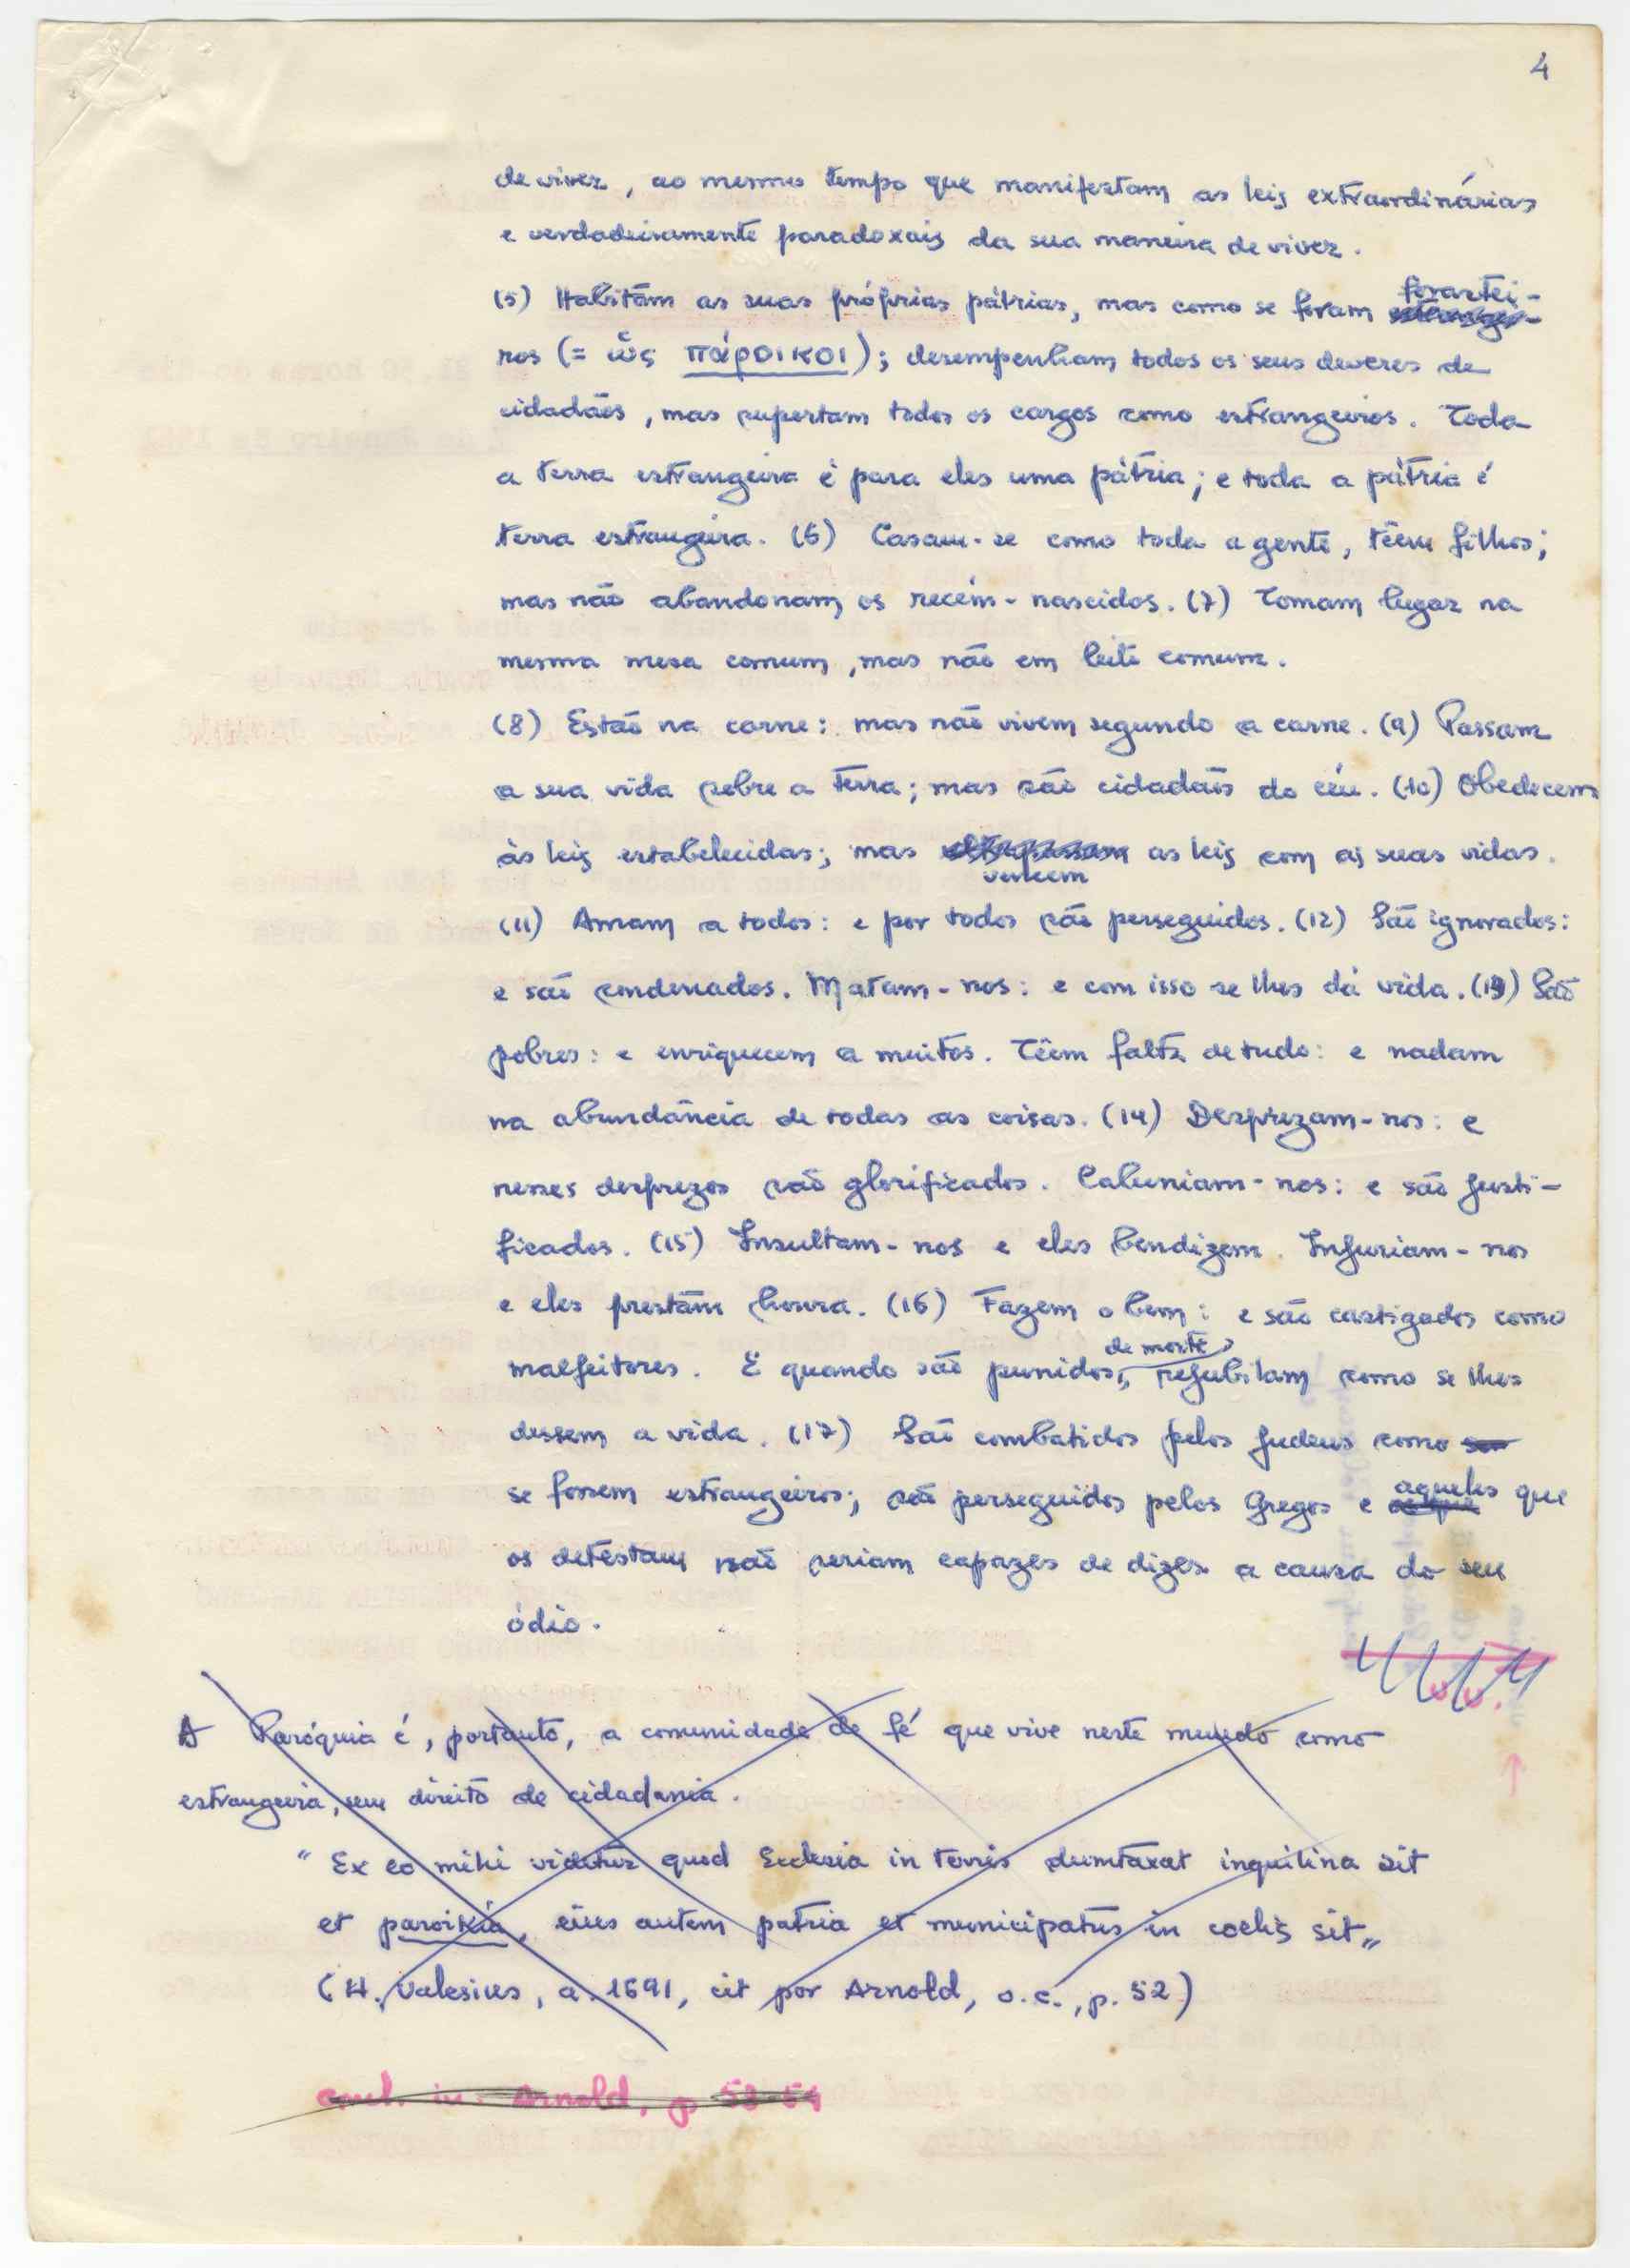 4
de viver, ao mesmo tempo que manifestam as leis extraordinárias
e verdadeiramente paradoxais da sua maneira de viver.
(5) Habitam as suas próprias pátrias, mas como se foram forastei-
ros (= ὡς πάροικοι); desempenham todos os seus deveres de
cidadãos, mas suportam todos os cargos como estrangeiros. Toda
a terra estrangeira é para eles uma pátria; e toda a pátria é
terra estrangeira. (6) Casam-se como toda a gente, têem filhos;
mas não abandonam os recém-nascidos. (7) Tomam lugar na
mesma mesa comum, mas não em leito comum.
(8) Estão na carne: mas não vivem segundo a carne. (9) Passam
a sua vida sobre a terra; mas são cidadãos do céu. (10) Obedecem
às leis estabelecidas; mas ultrapassam as leis com as suas vidas.
vencem
(11) Amam a todos: e por todos são perseguidos. (12) São ignorados:
e são condenados. Matam-nos: e com isso se lhes dá vida. (13) São
pobres: e enriquecem a muitos. Têem falta de tudo: e nadam
na abundância de todas as coisas. (14) Desprezam-nos: e
nesses desprezos são glorificados. Caluniam-nos: e são justi-
ficados. (15) Insultam-nos e eles bendizem. Injuriam-nos
e eles prestam honra. (16) Fazem o bem: e são castigados como
de morte,
malfeitores. E quando são punidos, rejubilam como se lhes
dessem a vida. (17) São combatidos pelos judeus como
se fossem estrangeiros; são perseguidos pelos Gregos e aqueles que
os detestam não seriam capazes de dizer a causa do seu
ódio.
A Paróquia é, portanto, a comunidade de fé que vive neste mundo como
estrangeira, sem direito de cidadania.
"Ex eo mihi videtur quod Ecclesia in terris dumtaxat inquilina sit
et paroikia, eius autem patria et municipatus in coelis sit"
(H. Valesius, a. 1691, cit por Arnold, o.c., p. 52)
conl. in Arnold, p 53-54